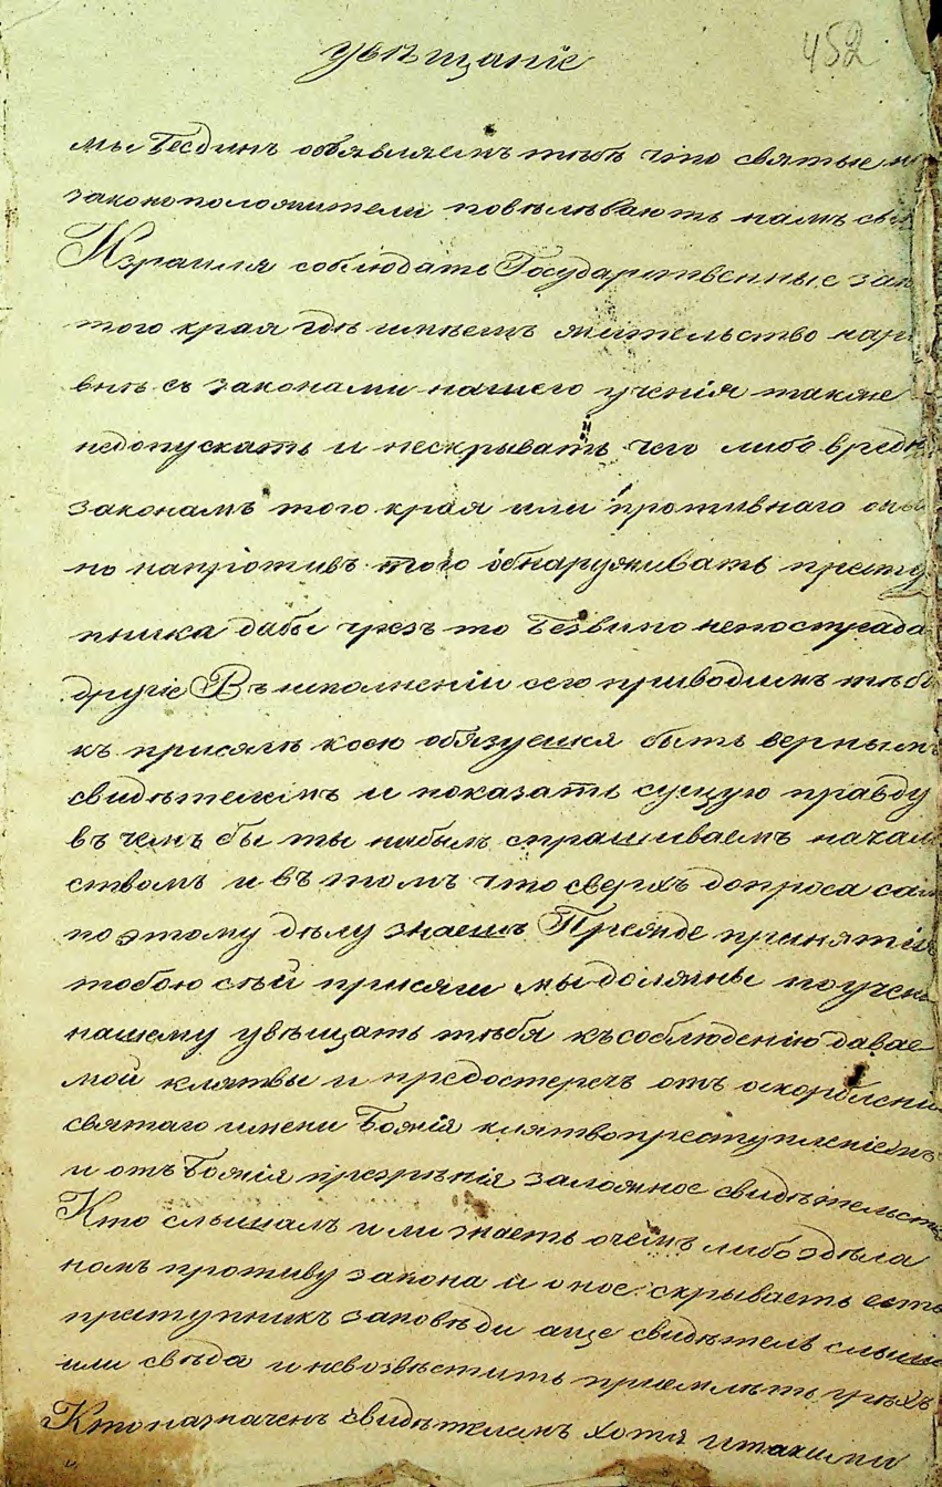 увѣщаніе
452
мы Бесдинъ объявляемъ тебѣ что святые
законоположители повѣлѣваютъ намъ
Израиля соблюдать Государственные зак
того края гдѣ имѣемъ жительство нар
внѣ съ законами нашего ученія также
недопускать и нескрывать чего либо вредн
законамъ того края или противнаго оны
но напротивъ того обнаруживать престу
пника дабы чрезъ то безвино непострада
другіе Въ исполненіи сего приводимъ тебя
къ присягѣ коею обязуешся быть вернымъ
свидѣтелемъ и показать сущую правду
въ чемъ бы ты небылъ спрашиваемъ начал
ствомъ и въ томъ что сверхъ допроса самъ
по этому дѣлу знаешъ Прежде принятія
тобою сѣй присяги мы должны поучен
нашему увѣщать тѣбя къ соблюденію давае
мой клятвы и предостеречъ отъ оскорбленія
святаго имени Божія клятвопреступленіемъ
и отъ Божія презрѣнія заложное свидѣтельств
Кто слышалъ или знаетъ очемъ либо здѣла
номъ противу закона и оное скрываетъ есть
преступникъ заповѣди аще свидѣтель слыша
или свѣда и невозвѣститъ приемлетъ грѣхъ
Кто назначенъ свидѣтелемъ хотя и такими